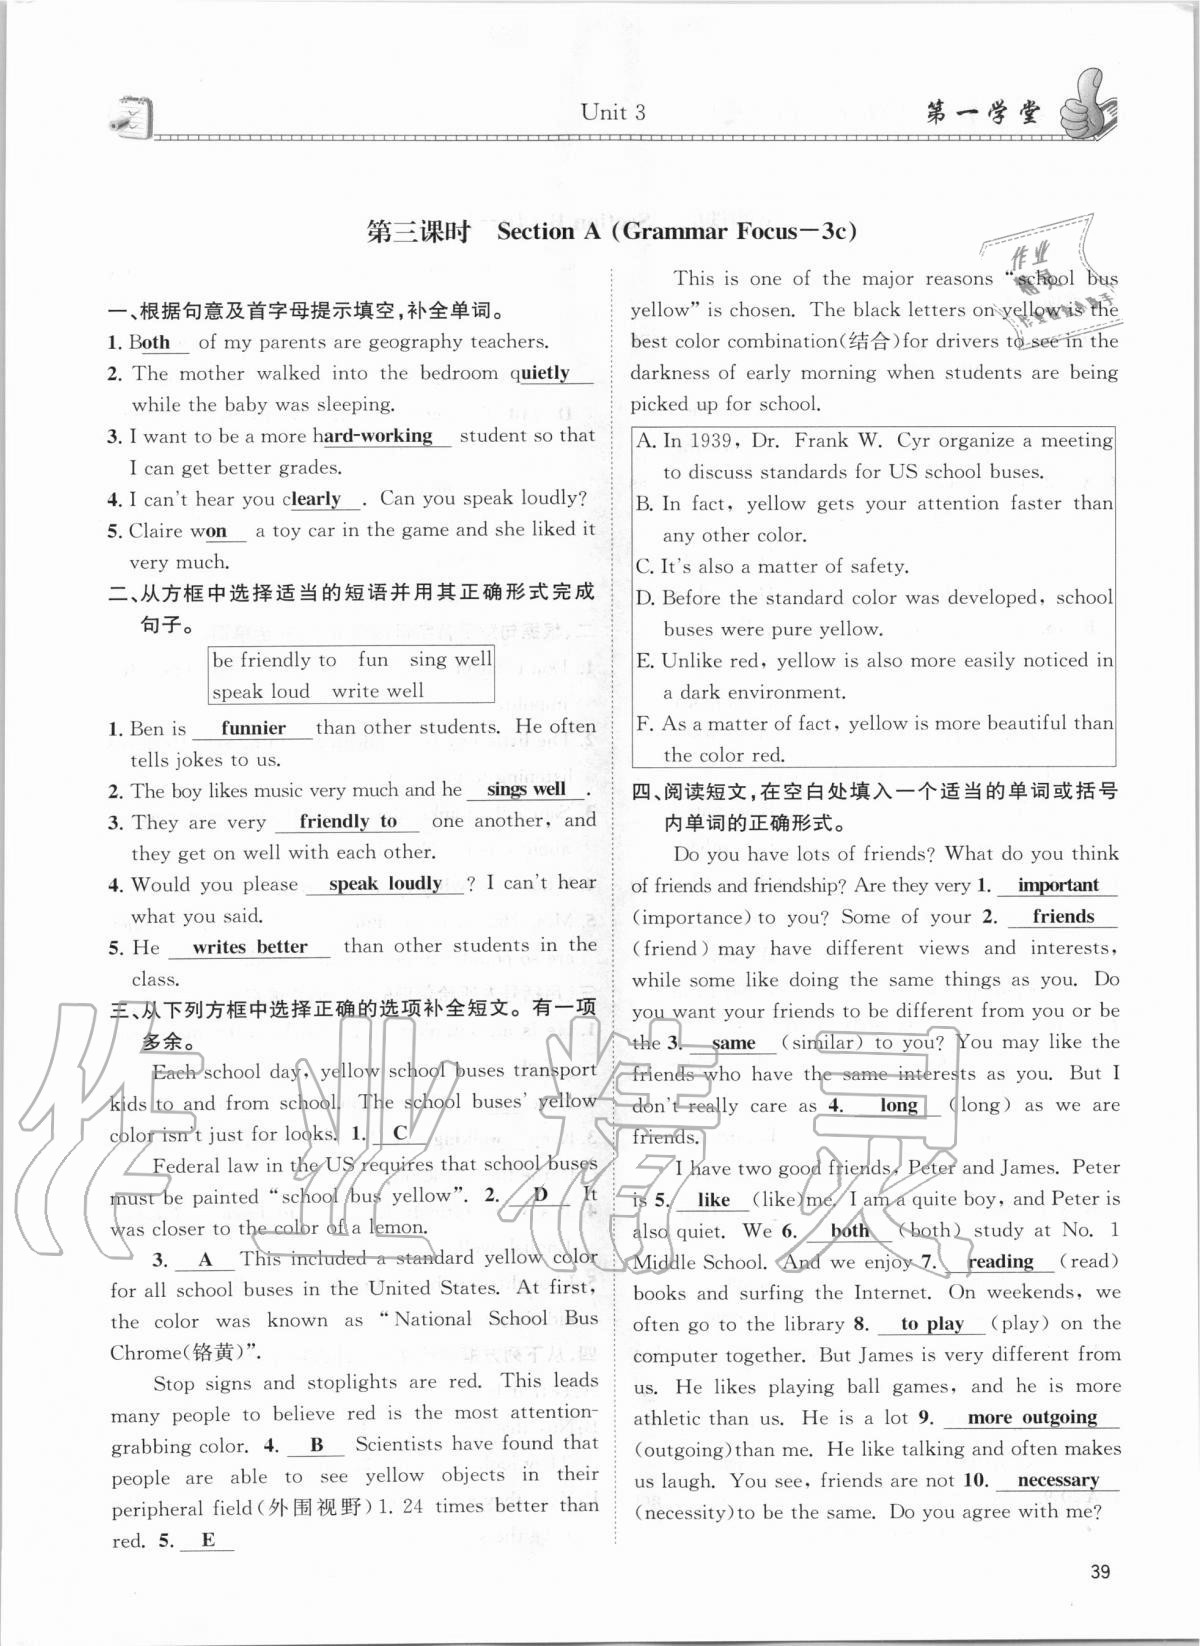 Unit 3
第一学堂
第三课时 Section A (Grammar Focus－3c)
一、根据句意及首字母提示填空，补全单词。
1. Both of my parents are geography teachers.
2. The mother walked into the bedroom quietly
while the baby was sleeping.
3. I want to be a more hard-working student so that
I can get better grades.
4. I can't hear you clearly. Can you speak loudly?
5. Claire won a toy car in the game and she liked it
very much.
二、从方框中选择适当的短语并用其正确形式完成
句子。
be friendly to fun sing well
speak loud write well
1. Ben is funnier than other students. He often
tells jokes to us.
2. The boy likes music very much and he sings well.
3. They are very friendly to one another, and
they get on well with each other.
4. Would you please speak loudly? I can't hear
what you said.
5. He writes better than other students in the
class.
三、从下列方框中选择正确的选项补全短文。有一项
多余。
Each school day, yellow school buses transport
kids to and from school. The school buses' yellow
color isn't just for looks. 1. C
Federal law in the US requires that school buses
must be painted "school bus yellow". 2. D It
was closer to the color of a lemon.
3. A This included a standard yellow color
for all school buses in the United States. At first,
the color was known as "National School Bus
Chrome(铬黄)".
Stop signs and stoplights are red. This leads
many people to believe red is the most attention-
grabbing color. 4. B Scientists have found that
people are able to see yellow objects in their
peripheral field(外围视野)1. 24 times better than
red. 5. E
This is one of the major reasons "school bus
yellow" is chosen. The black letters on yellow is the
best color combination(结合)for drivers to see in the
darkness of early morning when students are being
picked up for school.
A. In 1939, Dr. Frank W. Cyr organize a meeting
to discuss standards for US school buses.
B. In fact, yellow gets your attention faster than
any other color.
C. It's also a matter of safety.
D. Before the standard color was developed, school
buses were pure yellow.
E. Unlike red, yellow is also more easily noticed in
a dark environment.
F. As a matter of fact, yellow is more beautiful than
the color red.
四、阅读短文，在空白处填入一个适当的单词或括号
内单词的正确形式。
Do you have lots of friends? What do you think
of friends and friendship? Are they very 1. important
(importance)to you? Some of your 2. friends
(friend) may have different views and interests,
while some like doing the same things as you. Do
you want your friends to be different from you or be
the 3. same (similar) to you? You may like the
friends who have the same interests as you. But I
don't really care as 4. long (long) as we are
friends.
I have two good friends, Peter and James. Peter
is 5. like (like)me. I am a quite boy, and Peter is
also quiet. We 6. both (both) study at No. 1
Middle School. And we enjoy 7. reading (read)
books and surfing the Internet. On weekends, we
often go to the library 8. to play (play) on the
computer together. But James is very different from
us. He likes playing ball games, and he is more
athletic than us. He is a lot 9. more outgoing
(outgoing)than me. He like talking and often makes
us laugh. You see, friends are not 10. necessary
(necessity)to be the same. Do you agree with me?
作业精灵
39